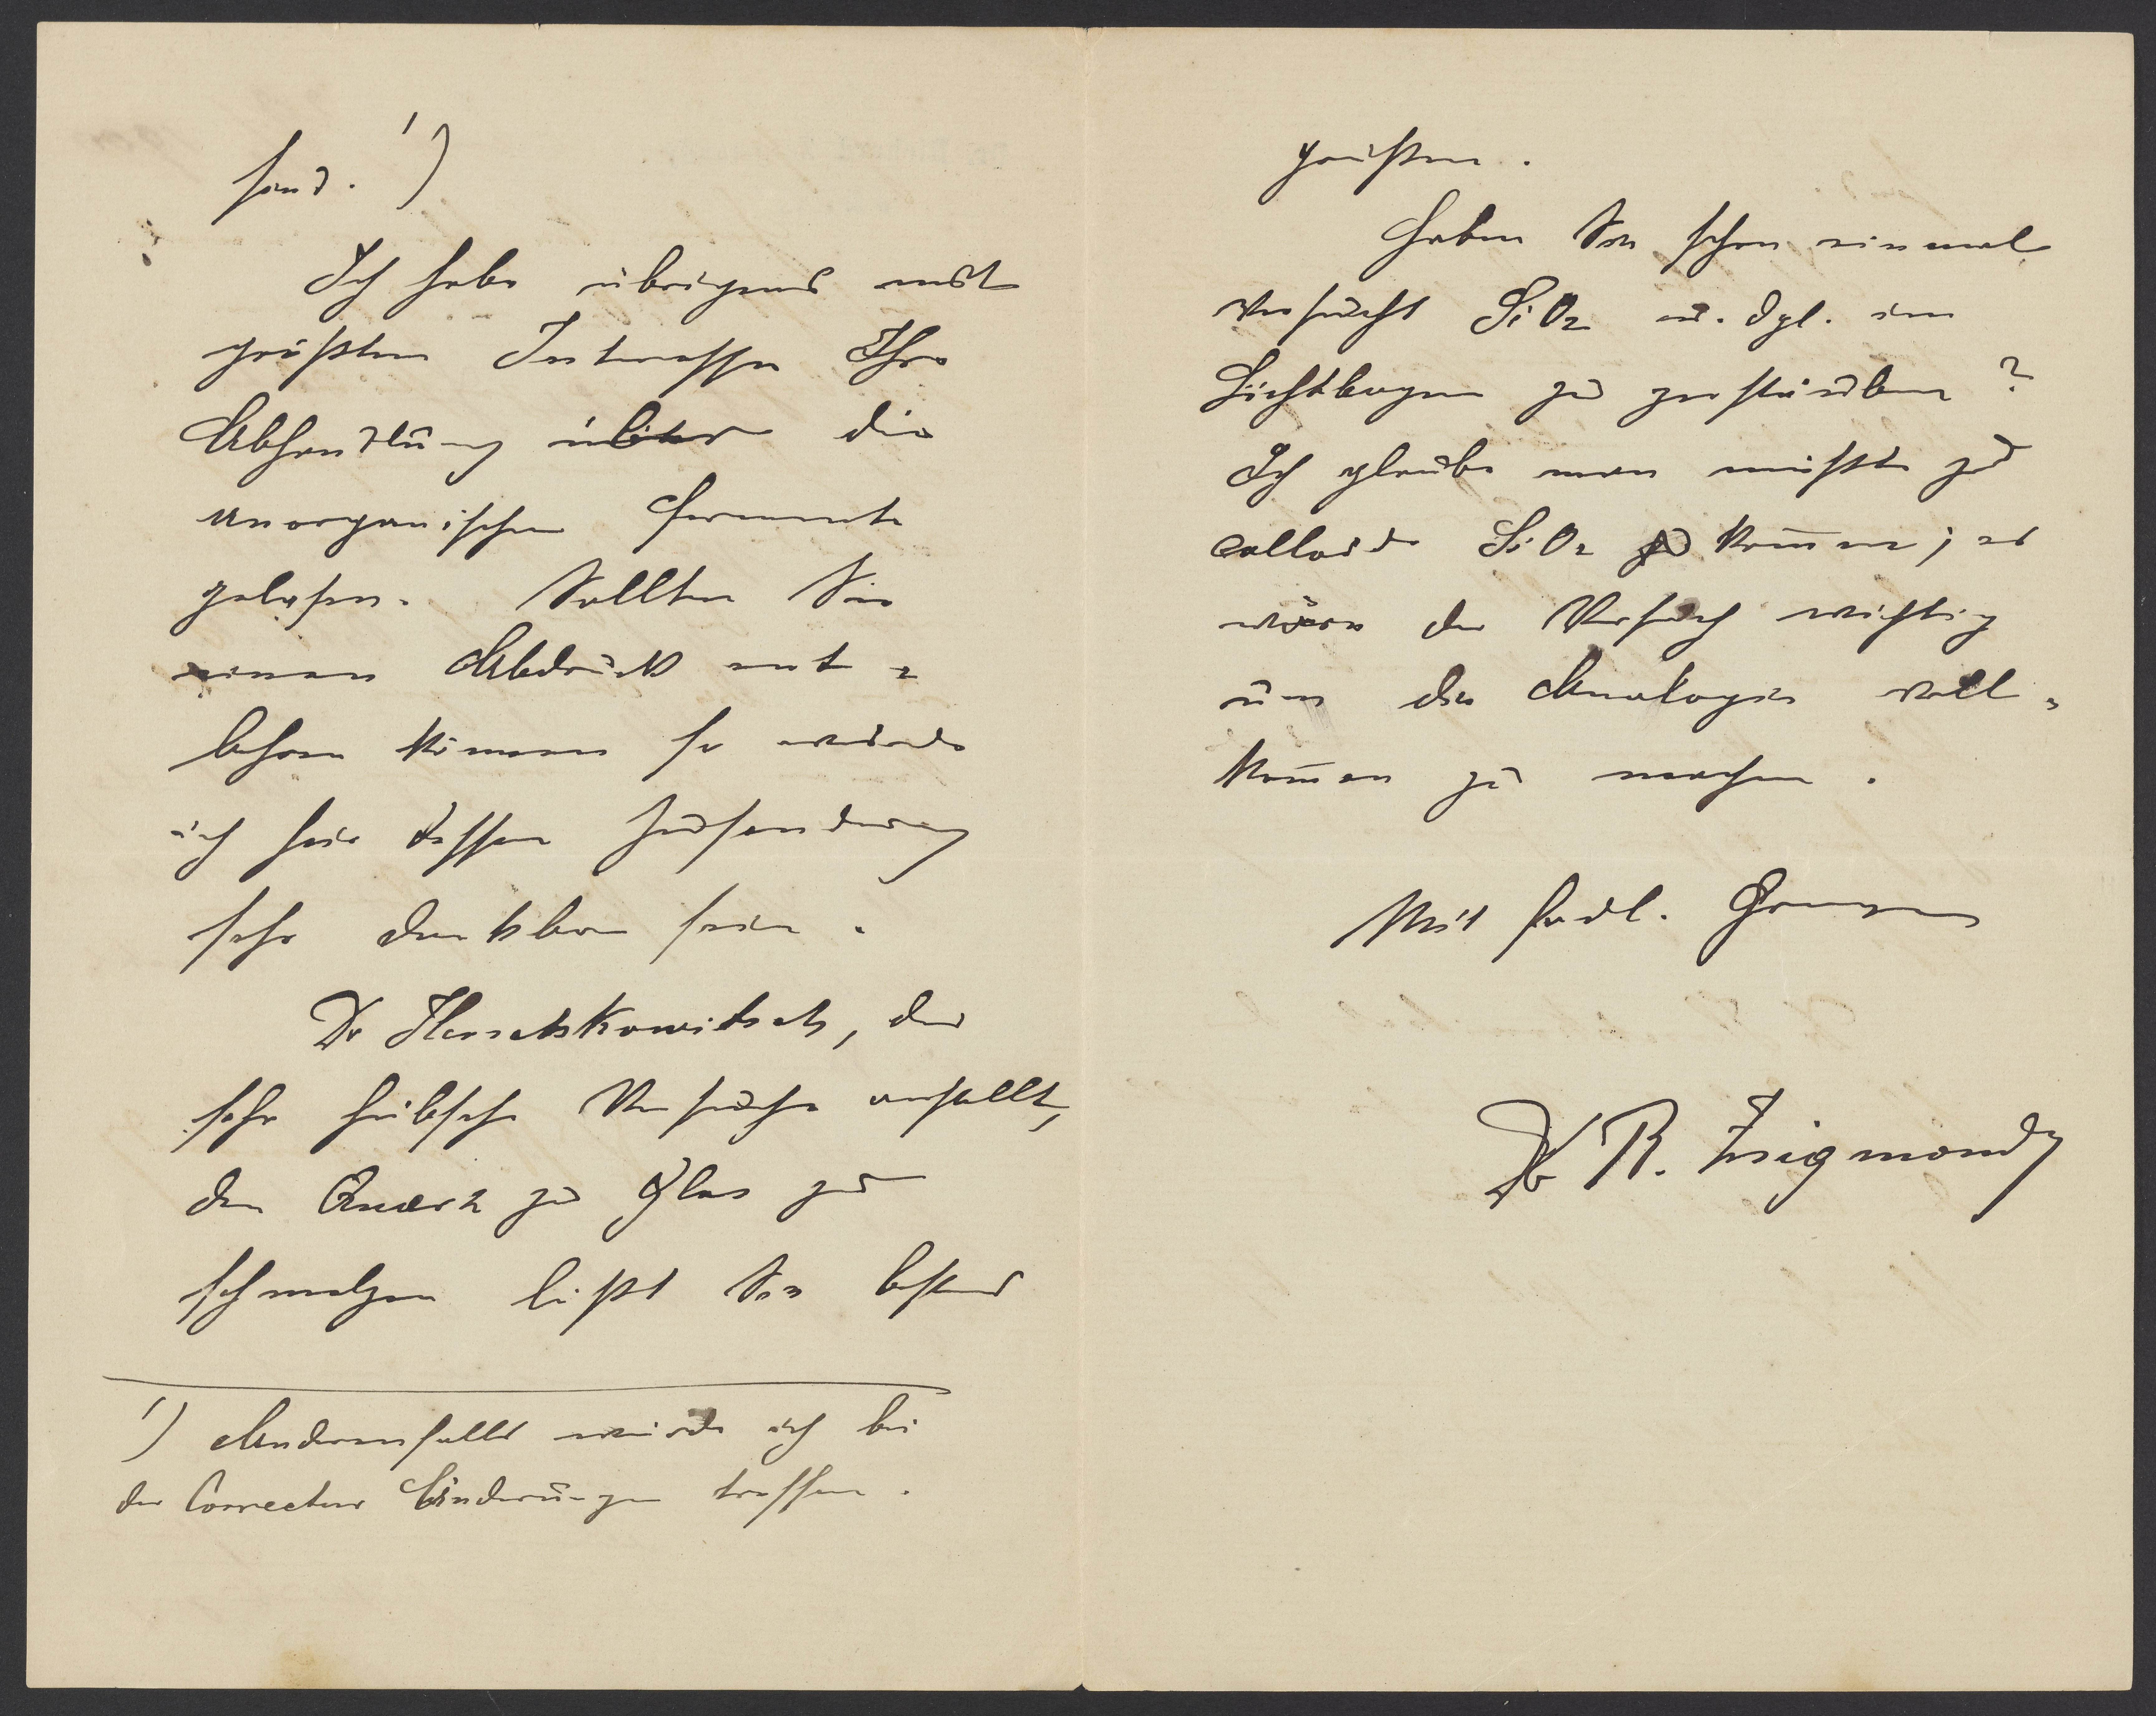 sind. ¹)
Ich habe übrigens mit
größtem Interesse Ihre
Abhandlung über die
anorganischen Fermente
gelesen. Sollten Sie
einen Abdruck ent-
behren können so würde
ich für dessen Zusendung
sehr dankbar sein.
Dr Herschkowitsch, der
sehr hübsche Versuche anstellt,
den Quarz zu Glas zu
schmelzen läßt Sie bestens
¹) Andernfalls würde ich bei
der Correctur Änderungen treffen.
grüßen.
Haben Sie schon einmal
versucht SiO₂ u. dgl. im
Lichtbogen zu zerstäuben?
Ich glaube man müßte zu
colloide SiO₂ kom̅en; es
wäre der Versuch wichtig
um die Analogie voll-
kom̅en zu machen.
Mit frdl. Grüßen
Dr R. Zsigmondy